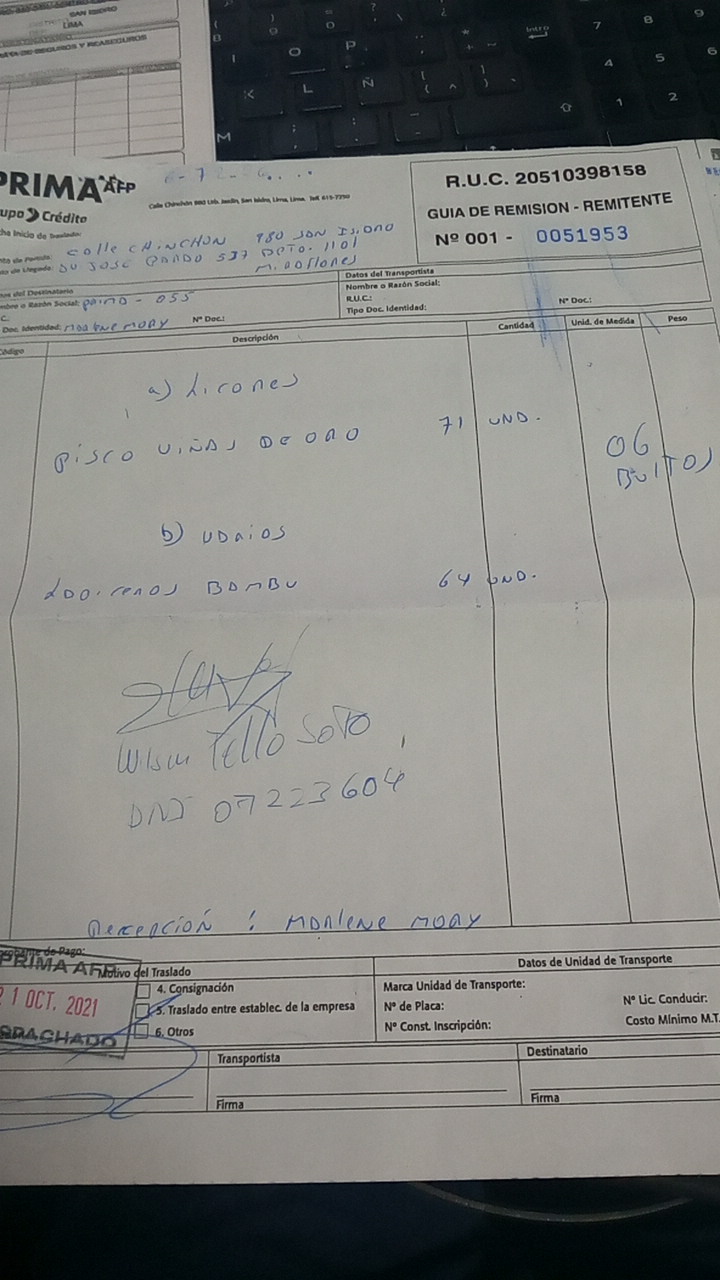 SAN ISIDRO
LIMA
SEGUROS Y REASEGUROS
PRIMA AFP
Grupo Crédito
Calle Chinchón 980 Urb. Jardín, San Isidro, Lima, Lima.
R.U.C. 20510398158
GUIA DE REMISION - REMITENTE
Nº 001 - 0051953
Inicio de Traslado:
de Partida: Calle CHINCHON 980 SAN ISIDRO
de Llegada: JOSE PARDO 537 DPTO. 1101
MIRAFLORES
Datos del Destinatario
Nombre o Razón Social: PRIMA - OSS
Doc. Identidad: MARLENE MORY Nº Doc.:
Datos del Transportista
Nombre o Razón Social:
R.U.C.: Nº Doc.:
Tipo Doc. Identidad:
Código Descripción Cantidad Unid. de Medida Peso
a) Licores
PISCO VIÑAS DE ORO 71 UND.
06
BULTOS
b) VARIOS
BAMBU 64 UND.
Wilson Tello Soto
DNI 07223604
Recepción : MARLENE MORY
Comprobante de Pago:
PRIMA AFP
21 OCT. 2021
DESPACHADO
Motivo del Traslado
4. Consignación
5. Traslado entre establec. de la empresa
6. Otros
Datos de Unidad de Transporte
Marca Unidad de Transporte:
Nº de Placa: Nº Lic. Conducir:
Nº Const. Inscripción: Costo Mínimo M.T.
Transportista Destinatario
Firma Firma